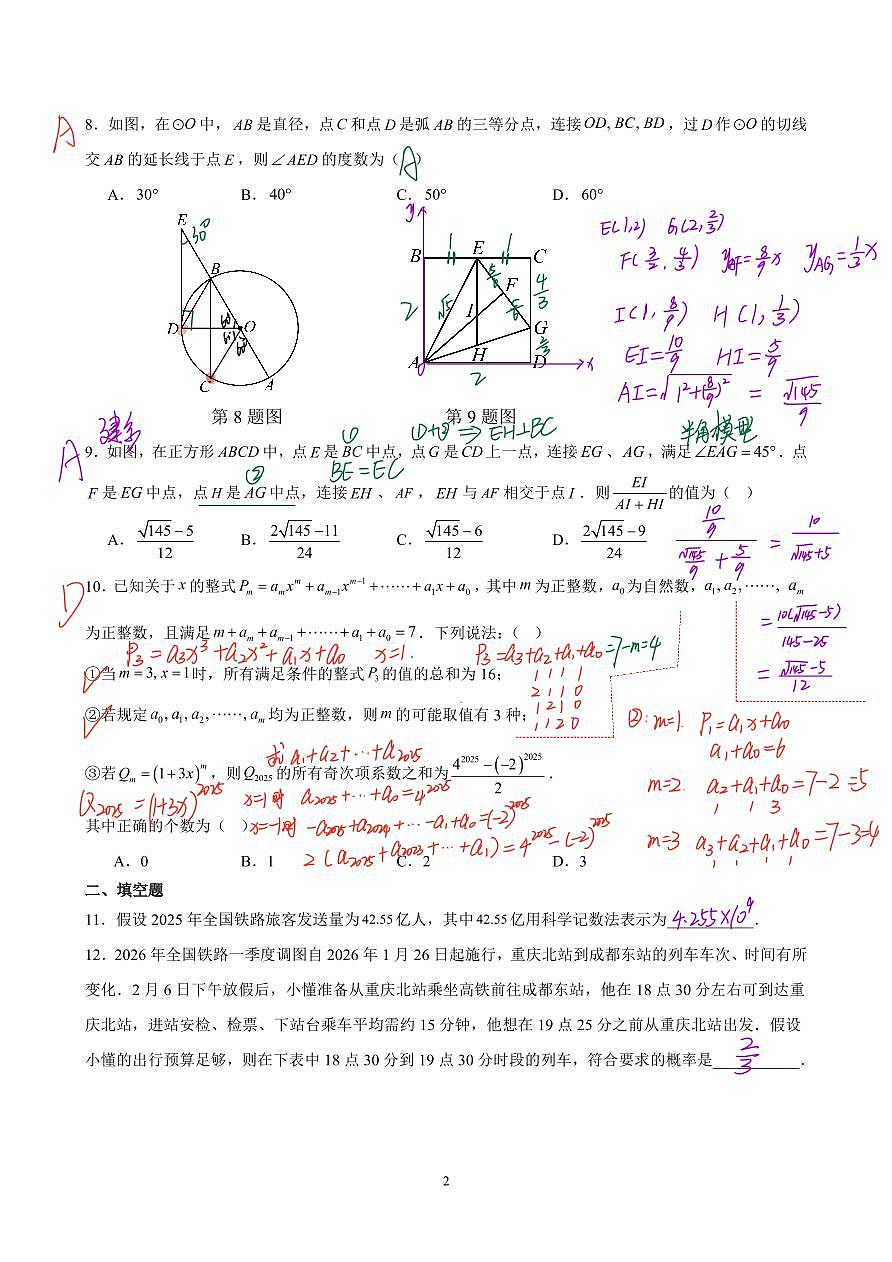 A
8．如图，在⊙O中，AB是直径，点C和点D是弧AB的三等分点，连接OD, BC, BD，过D作⊙O的切线
交AB的延长线于点E，则∠AED的度数为（A）
A．30° B．40° C．50° D．60°
E 30°
B
D O
60° 60° 60°
C A
第8题图
y
B E C
2 √5 5/6 F 4/3
I 5/6 G
H 2/3
A D x
2
第9题图
E(1,2) G(2,2/3)
F(3/2,4/3) yAF=8/9x yAG=1/3x
I(1,8/9) H(1,1/3)
EI=10/9 HI=5/9
AI=√(1²+(8/9)²) = √145/9
建系 ① ①+②⇒EH⊥BC 半角模型
A
9．如图，在正方形ABCD中，点E是BC中点，点G是CD上一点，连接EG、AG，满足∠EAG=45°．点
② BE=EC
F是EG中点，点H是AG中点，连接EH、AF，EH与AF相交于点I．则EI/(AI+HI)的值为（ ）
A．(√145−5)/12 B．(2√145−11)/24 C．(√145−6)/12 D．(2√145−9)/24
(10/9)/(√145/9+5/9) = 10/(√145+5)
=10(√145-5)/(145-25)
=(√145-5)/12
D
10．已知关于x的整式Pₘ=aₘxᵐ+aₘ₋₁xᵐ⁻¹+⋯⋯+a₁x+a₀，其中m为正整数，a₀为自然数，a₁, a₂, ⋯⋯, aₘ
为正整数，且满足m+aₘ+aₘ₋₁+⋯⋯+a₁+a₀=7．下列说法：（ ）
P₃=a₃x³+a₂x²+a₁x+a₀ x=1. P₃=a₃+a₂+a₁+a₀=7-m=4
①当m=3, x=1时，所有满足条件的整式P₃的值的总和为16；
1 1 1 1
2 1 1 0
1 2 1 0
1 1 2 0
②若规定a₀, a₁, a₂, ⋯⋯, aₘ均为正整数，则m的可能取值有3种；
②:m=1. P₁=a₁x+a₀
a₁+a₀=6
m=2. a₂+a₁+a₀=7-2=5
1 1 3
m=3 a₃+a₂+a₁+a₀=7-3=4
1 1 1 1
求a₁+a₂+…+a₂₀₂₅
③若Qₘ=(1+3x)ᵐ，则Q₂₀₂₅的所有奇次项系数之和为(4²⁰²⁵−(−2)²⁰²⁵)/2．
Q₂₀₂₅=(1+3x)²⁰²⁵ x=1时 a₂₀₂₅+…+a₀=4²⁰²⁵
其中正确的个数为（ ）
x=-1时 -a₂₀₂₅+a₂₀₂₄+…-a₁+a₀=(-2)²⁰²⁵
2(a₂₀₂₅+a₂₀₂₃+…+a₁)=4²⁰²⁵-(-2)²⁰²⁵
A．0 B．1 C．2 D．3
二、填空题
11．假设2025年全国铁路旅客发送量为42.55亿人，其中42.55亿用科学记数法表示为4.255×10⁹．
12．2026年全国铁路一季度调图自2026年1月26日起施行，重庆北站到成都东站的列车车次、时间有所
变化．2月6日下午放假后，小懂准备从重庆北站乘坐高铁前往成都东站，他在18点30分左右可到达重
庆北站，进站安检、检票、下站台乘车平均需约15分钟，他想在19点25分之前从重庆北站出发．假设
小懂的出行预算足够，则在下表中18点30分到19点30分时段的列车，符合要求的概率是2/3．
2